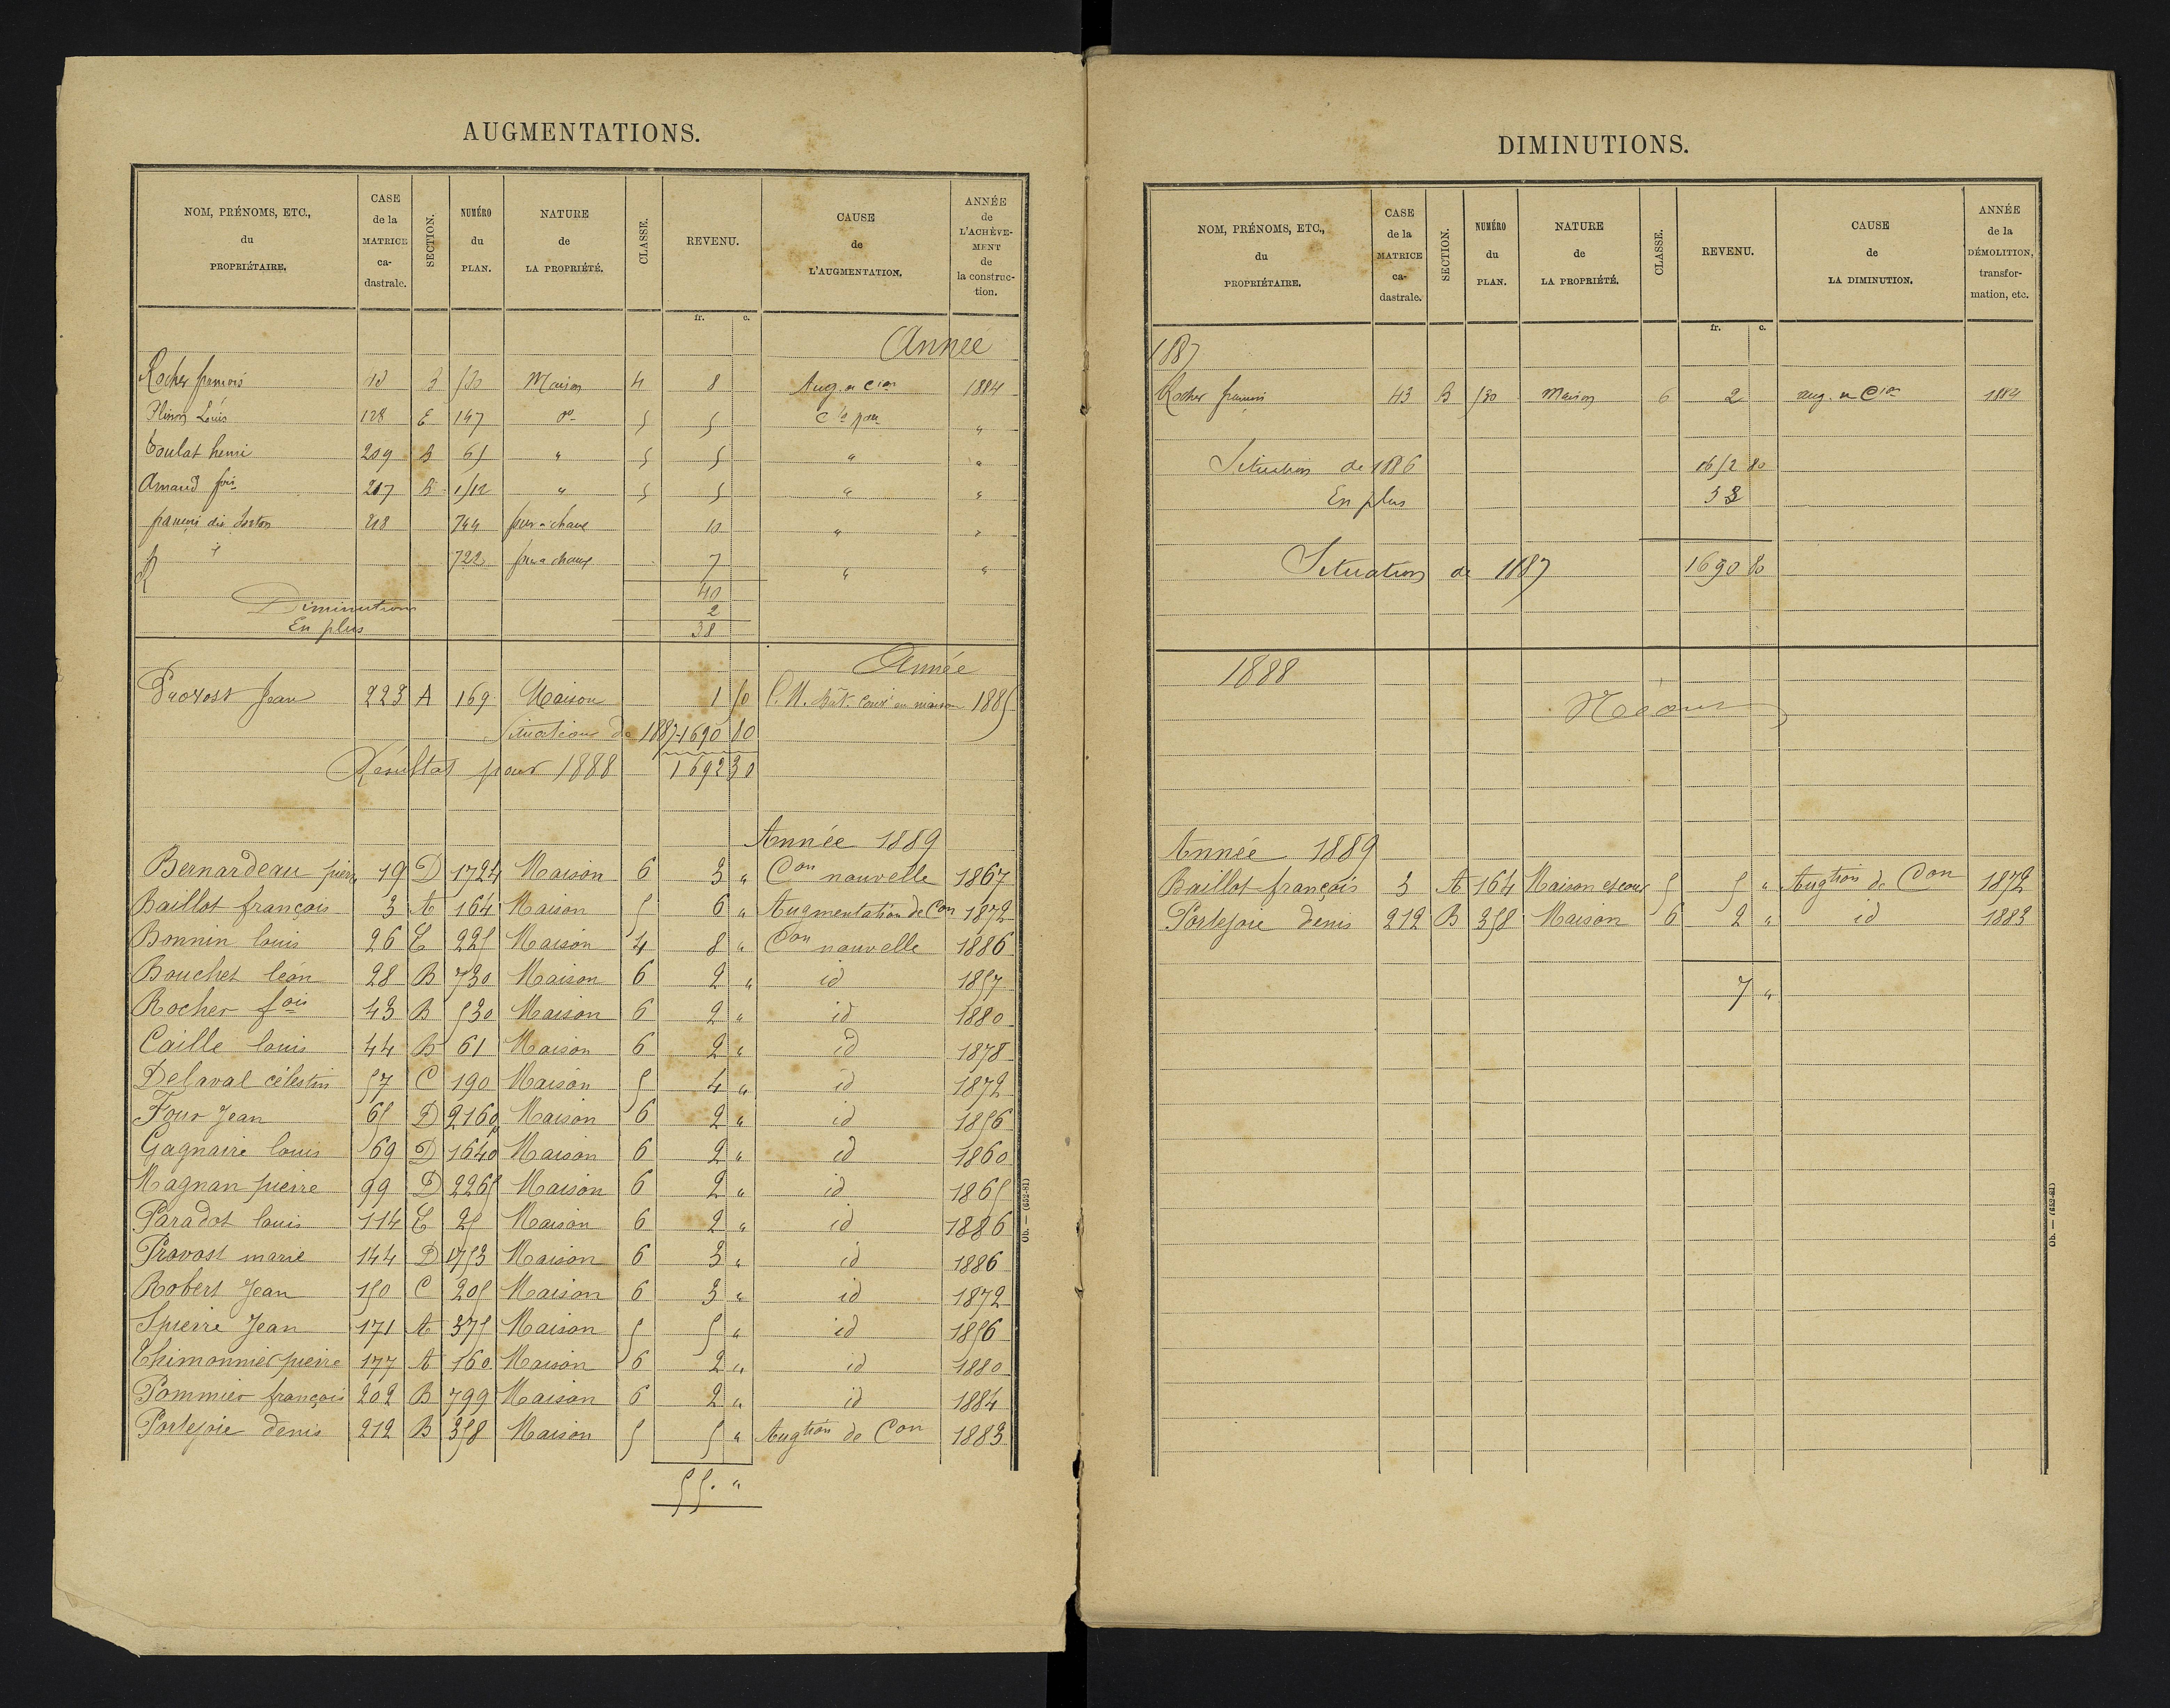 AUGMENTATIONS.
NOM, PRÉNOMS, ETC., du PROPRIÉTAIRE.
CASE de la MATRICE ca- dastrale.
SECTION.
NUMÉRO du PLAN.
NATURE de LA PROPRIÉTÉ.
CLASSE.
REVENU.
CAUSE de L'AUGMENTATION.
ANNÉE de L'ACHÈVE- MENT de la construc- tion.
fr. c.
Année
Rocher françois 530 Maison 4 8 Aug. a Cion 1884
Louis 128 E 147 do 5 5 "
Coulat henri 209 B 61 " 5 5 " "
Arnaud fois 217 B 1512 " 5 5 " "
218 744 four a chaux 10 " "
722 four a chaux 7 " "
40
Diminution 2
En plus 38
Année
Provost Jean 223 A 169 Maison 1 50 en maison 1885
Situation de 1887 1690 80
Résultat pour 1888 1692 30
Année 1889
Bernardeau pierre 19 D 1724 Maison 6 3 " Con nouvelle 1867
Baillot françois 3 A 164 Maison 5 6 " Augmentation de Con 1872
Bonnin louis 26 E 225 Maison 4 8 " Con nouvelle 1886
Bouchet léon 28 B 730 Maison 6 2 " id 1857
Rocher fois 43 B 530 Maison 6 2 " id 1880
Caille louis 44 B 61 Maison 6 2 " id 1878
Delaval célestin 57 C 190 Maison 5 4 " id 1872
Four Jean 65 D 2160 Maison 6 2 " id 1856
Gagnaire louis 69 D 1640 Maison 6 2 " id 1860
Magnan pierre 99 D 2265 Maison 6 2 " id 1865
Paradot louis 114 E 25 Maison 6 2 " id 1886
Provost marie 144 D 1753 Maison 6 3 " id 1886
Robert Jean 150 C 205 Maison 6 3 " id 1872
Spierre Jean 171 A 375 Maison 5 5 " id 1856
Thimonnier pierre 177 A 160 Maison 6 2 " id 1880
Pommier françois 202 B 799 Maison 6 2 " id 1884
Portejoie denis 212 B 358 Maison 5 5 " Augtion de Con 1883
55. "
Ob. — (652-81)
DIMINUTIONS.
NOM, PRÉNOMS, ETC., du PROPRIÉTAIRE.
CASE de la MATRICE ca- dastrale.
SECTION.
NUMÉRO du PLAN.
NATURE de LA PROPRIÉTÉ.
CLASSE.
REVENU.
CAUSE de LA DIMINUTION.
ANNÉE de la DÉMOLITION, transfor- mation, etc.
fr. c.
1887
Rocher francois 43 B 530 Maison 6 2 aug. a Cion 1884
Situation de 1886 1652 80
En plus 38
Situation de 1887 1690 80
1888
Néant
Année 1889
Baillot françois 3 A 164 Maison et cour 5 5 " Augtion de Con 1872
Portejoie denis 212 B 358 Maison 6 2 " id 1883
7 "
Ob. — (652-81)